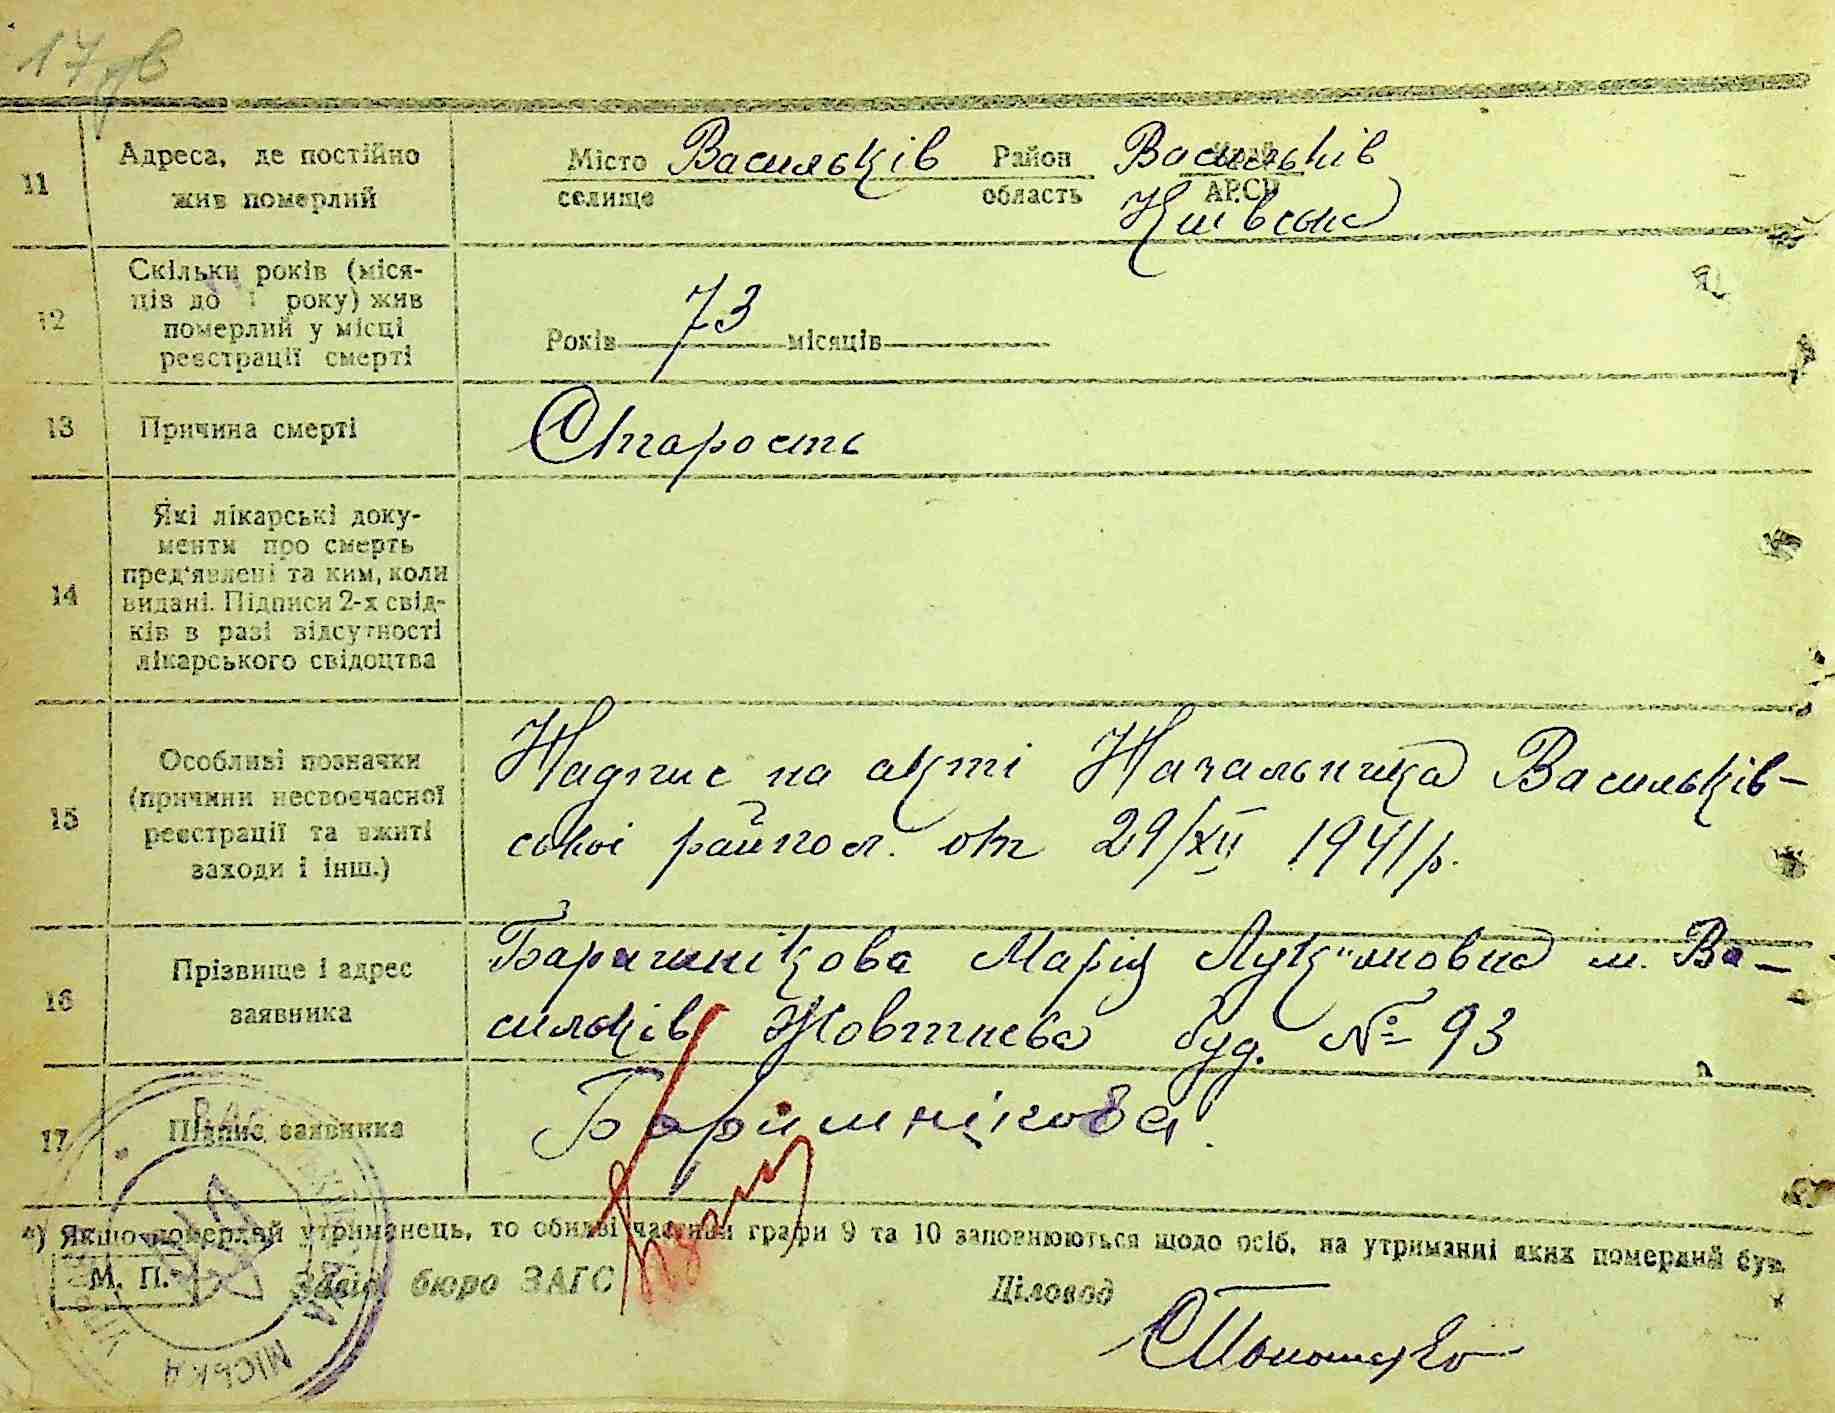 17
11
Адреса, де постійно
жив померлий
Місто Васильків Район Васильків
селище область АРСР Київська
12
Скільки років (міся-
ців до 1 року) жив
померлий у місці
реєстрації смерті
Років 73 місяців
13
Причина смерті
Старость
14
Які лікарські доку-
менти про смерть
пред'явлені та ким, коли
видані. Підписи 2-х свід-
ків в разі відсутності
лікарського свідоцтва
15
Особливі позначки
(причини несвоєчасної
реєстрації та вжиті
заходи і інш.)
Надпис на акті Начальника Васильків-
ської райпол. от 29/XII 1941 р.
16
Прізвище і адрес
заявника
Баришнікова Марія Лук'яновна м. Ва-
сильків Жовтнева буд. № 93
17
Підпис заявника
Баришнікова.
*) Якщо померлий утриманець, то обидві частини графи 9 та 10 заповнюються щодо осіб, на утриманні яких померлий був.
М. П.
Завід бюро ЗАГС
Діловод
МІСЬКА